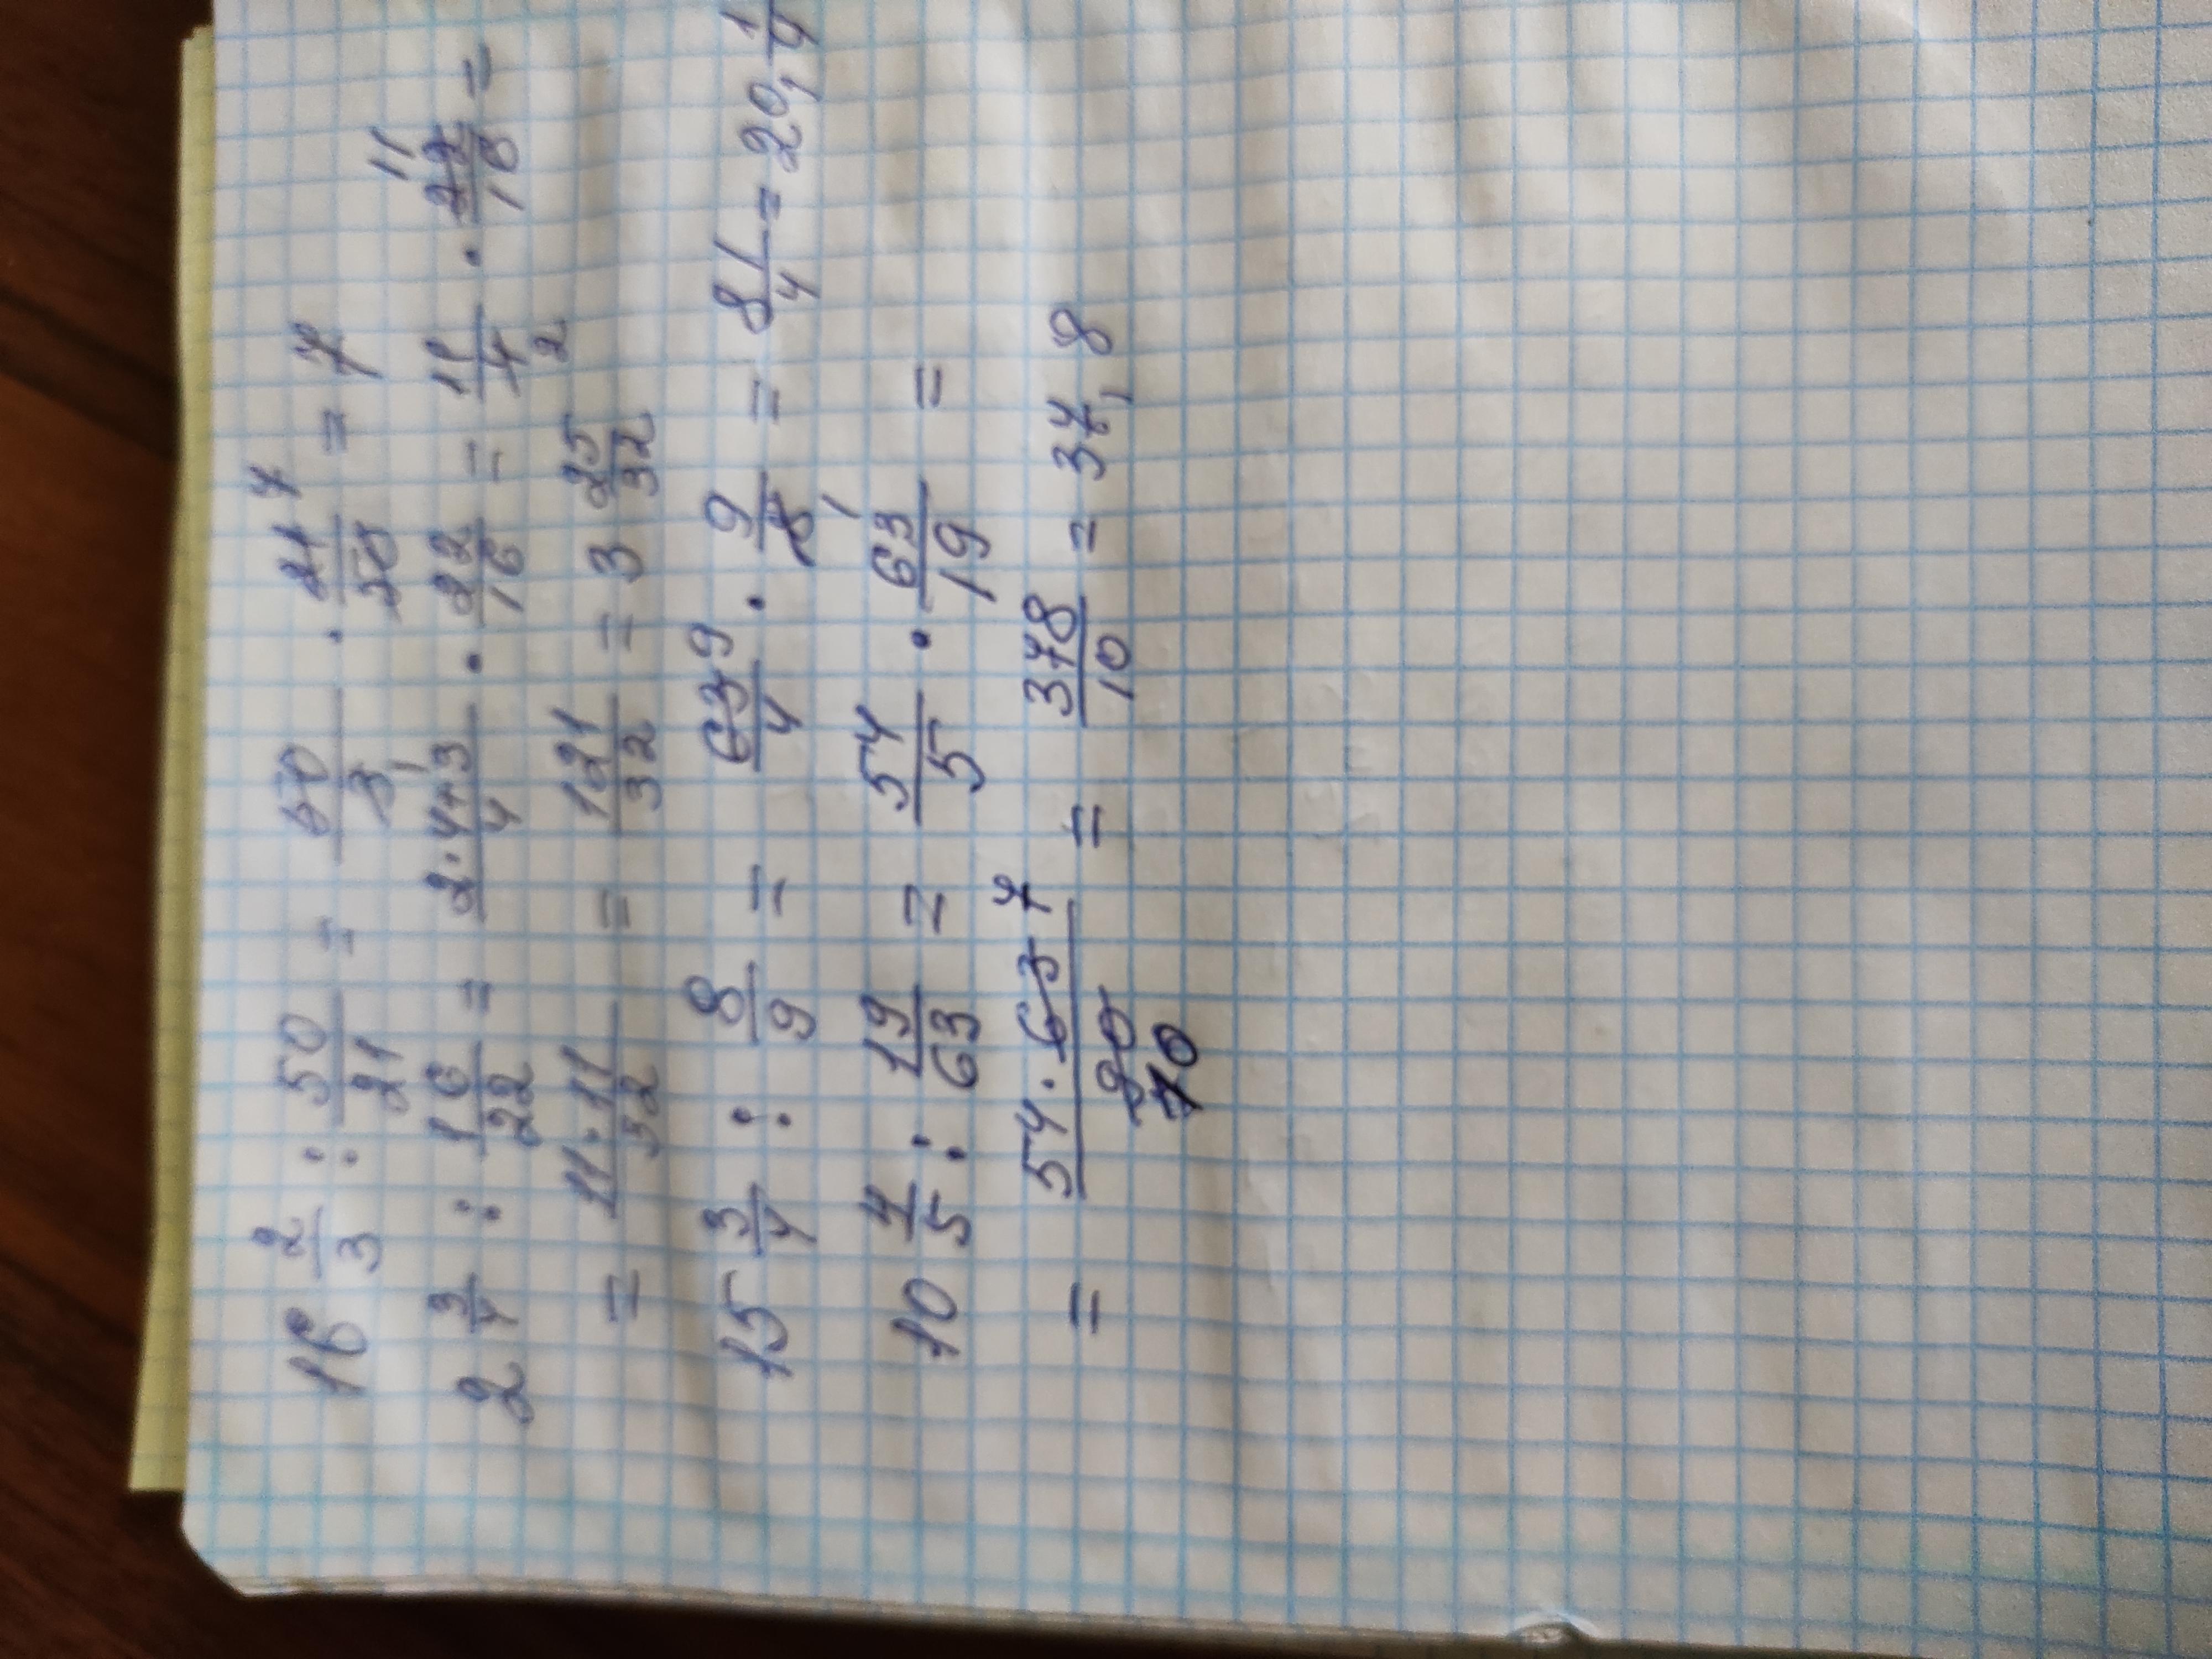 16 2/3 : 50/21 = 50/3 1 · 21/50 7 = 7
2 3/4 : 16/22 = 2·4+3/4 · 22/16 = 11/4 2 · 22/16 11 =
= 11·11/32 = 121/32 = 3 25/32
15 3/4 : 8/9 = 63/4 9 · 9/8 1 = 81/4 = 20, 1/4
10 4/5 : 19/63 = 54/5 · 63/19 =
= 54·63 7/90 10 = 378/10 = 37,8